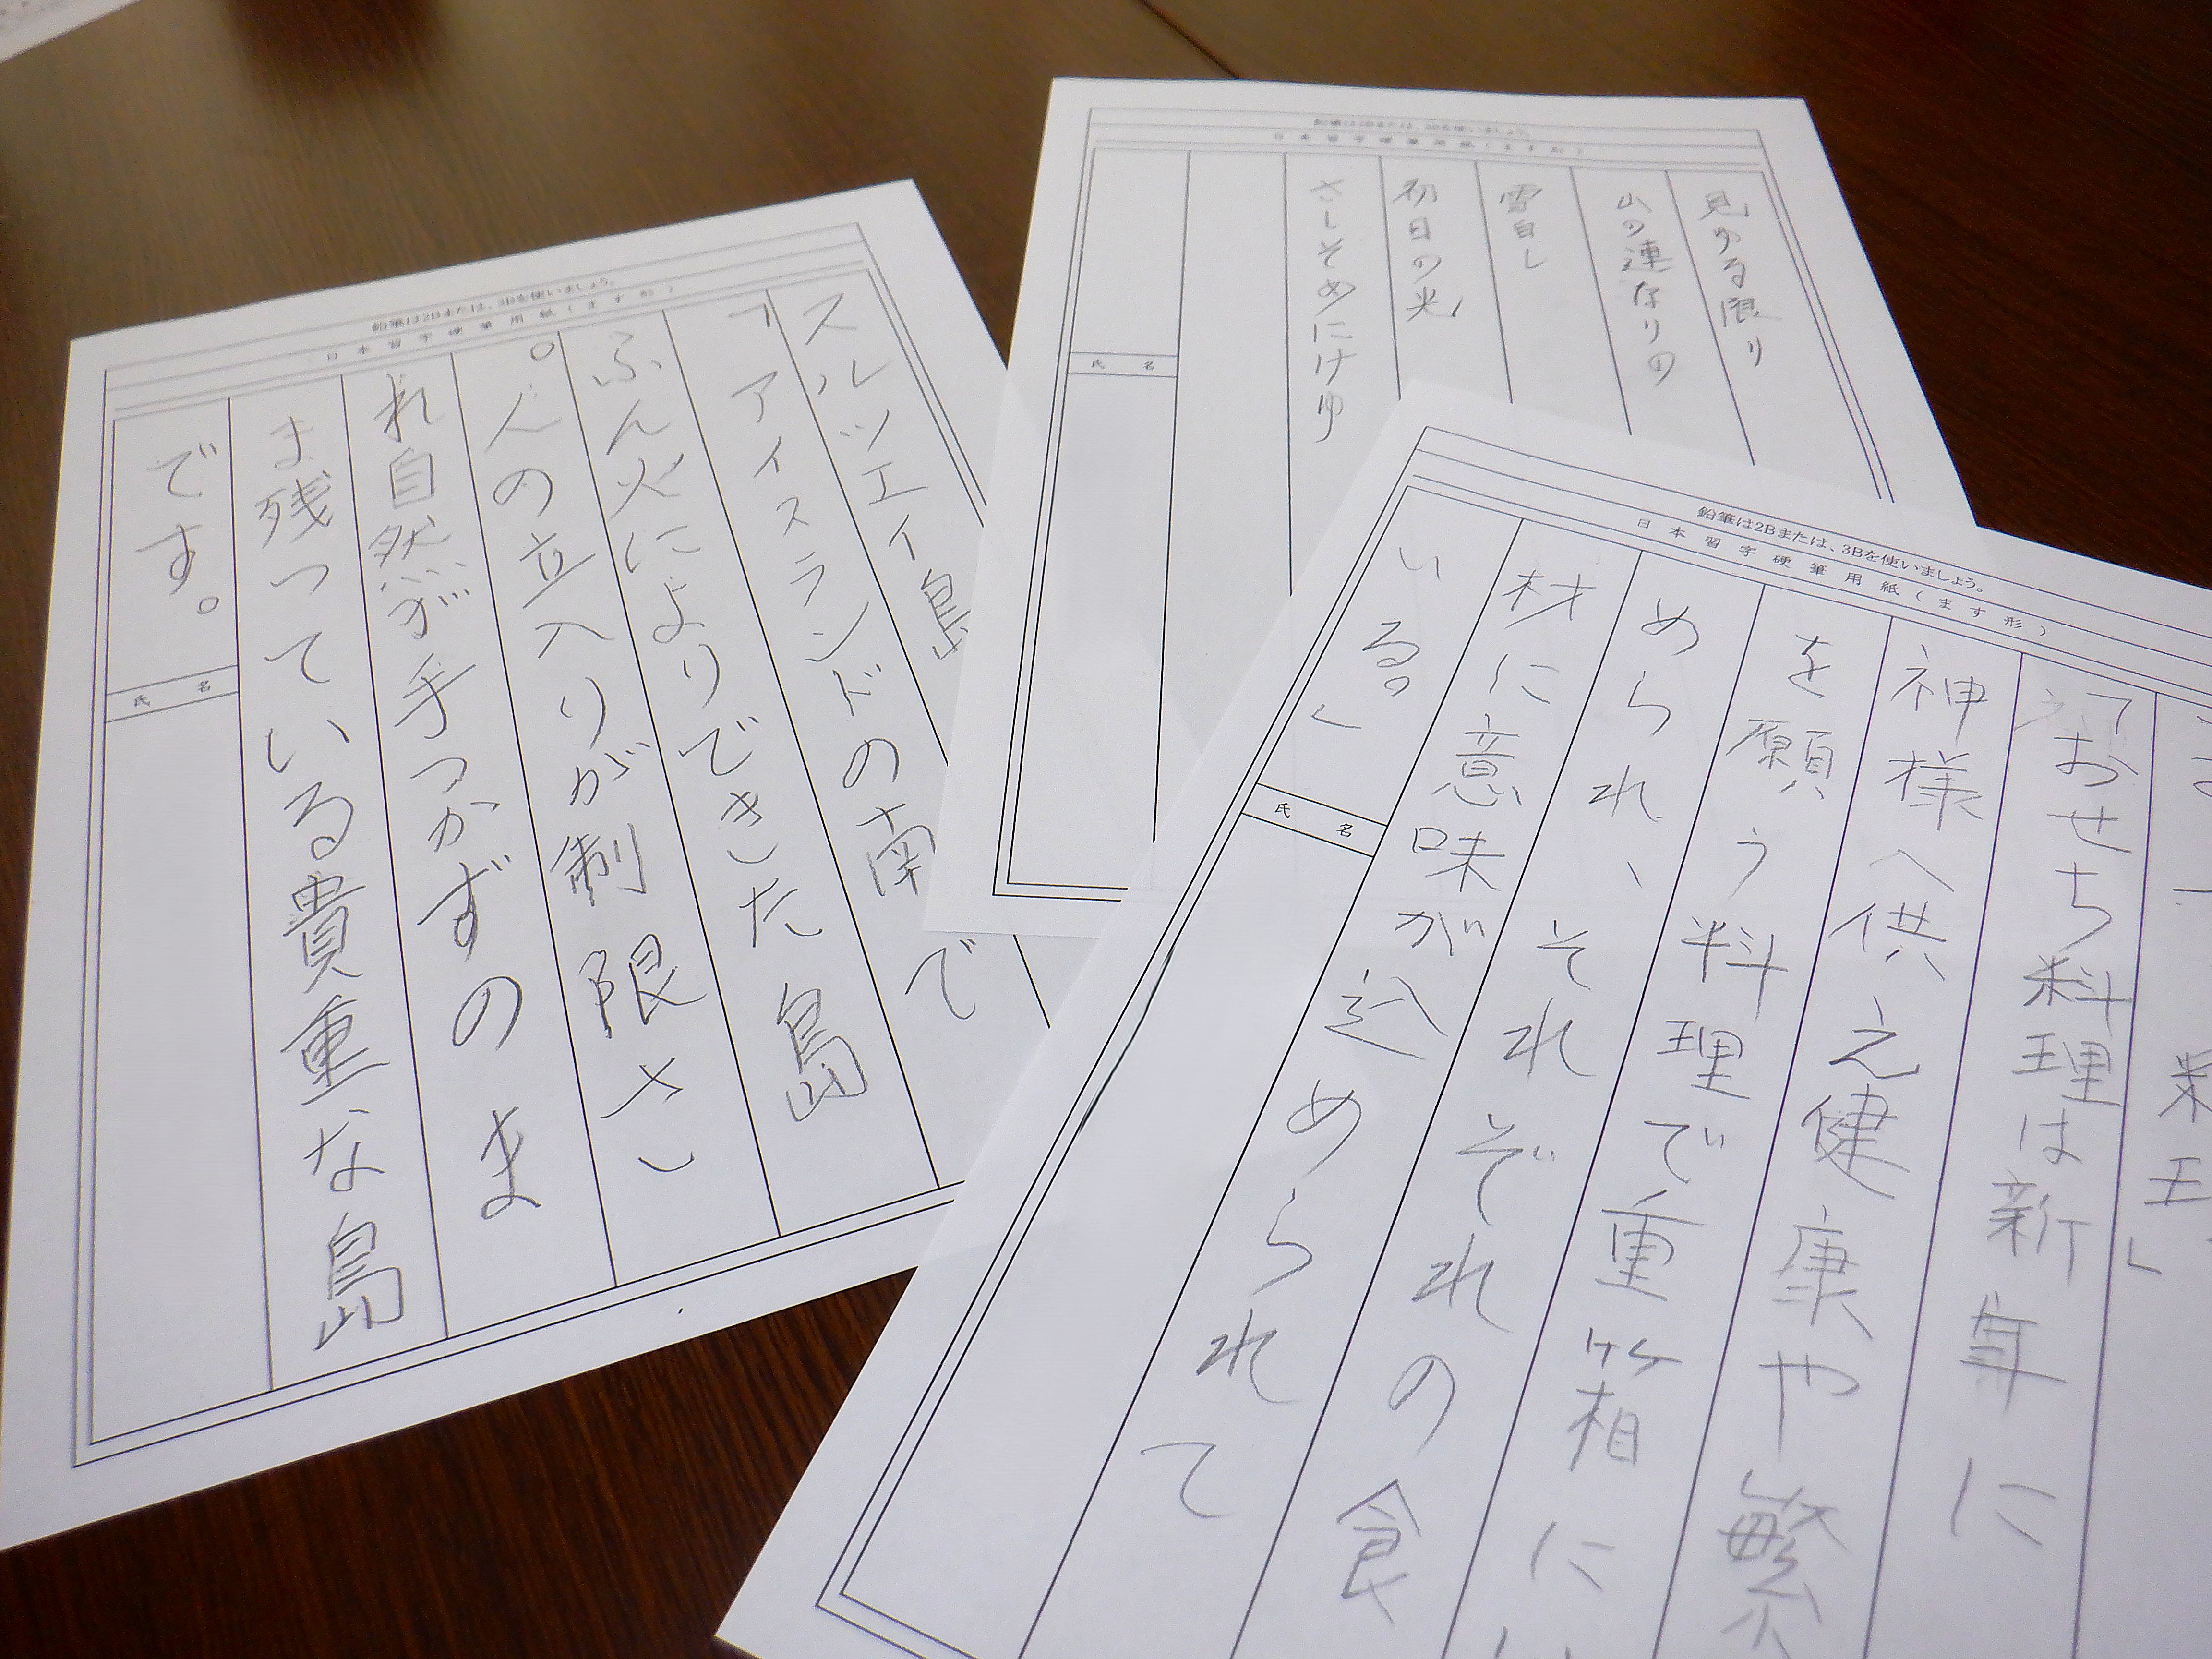 鉛筆は2Bまたは、3Bを使いましょう。
日本習字硬筆用紙(ます形)
スルツエイ島
「アイスランドの南で
ふん火によりできた島
。人の立入りが制限さ
れ自然が手つかずのま
ま残っている貴重な島
です。
氏名
鉛筆は2Bまたは、3Bを使いましょう。
日本習字硬筆用紙(ます形)
見ゆる限り
山の連なりの
雪白し
初日の光
さしそめにけり
氏名
鉛筆は2Bまたは、3Bを使いましょう。
日本習字硬筆用紙(ます形)
「おせち料理は新年に
神様へ供え健康や繁
を願う料理で重箱に
められ、それぞれの食
材に意味が込められて
いる。」
氏名